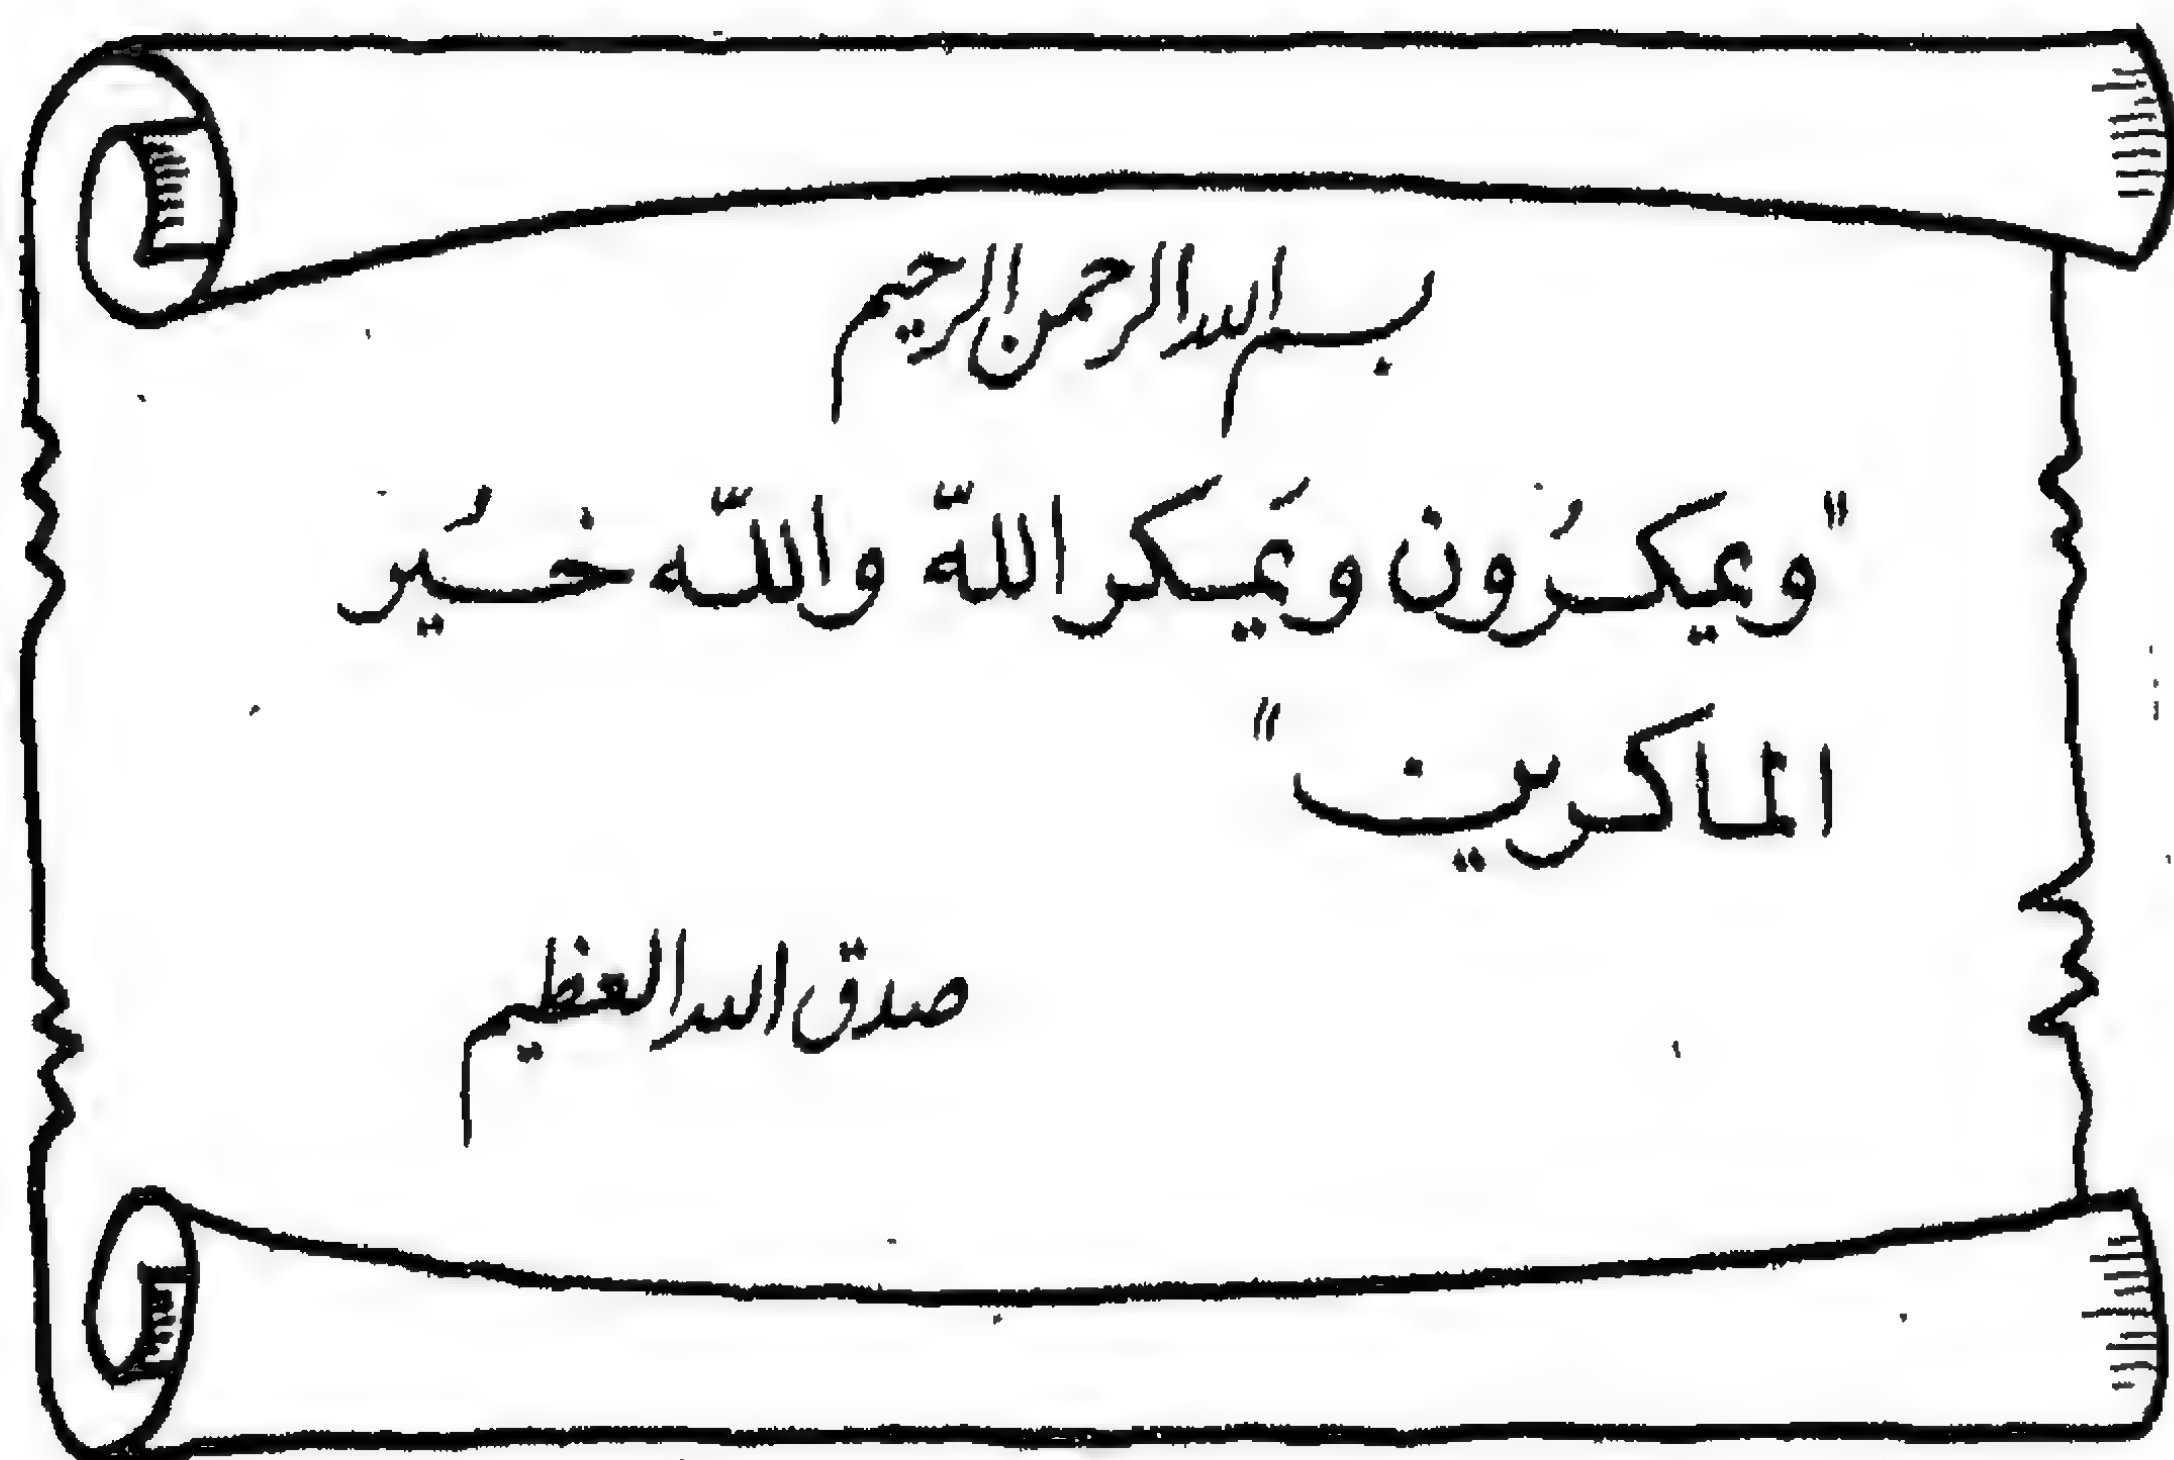 بسم الله الرحمن الرحيم
"ويمكرُون ويَمكر اللهّ واللّه خَير
الماكرين"
صدق الله العظيم